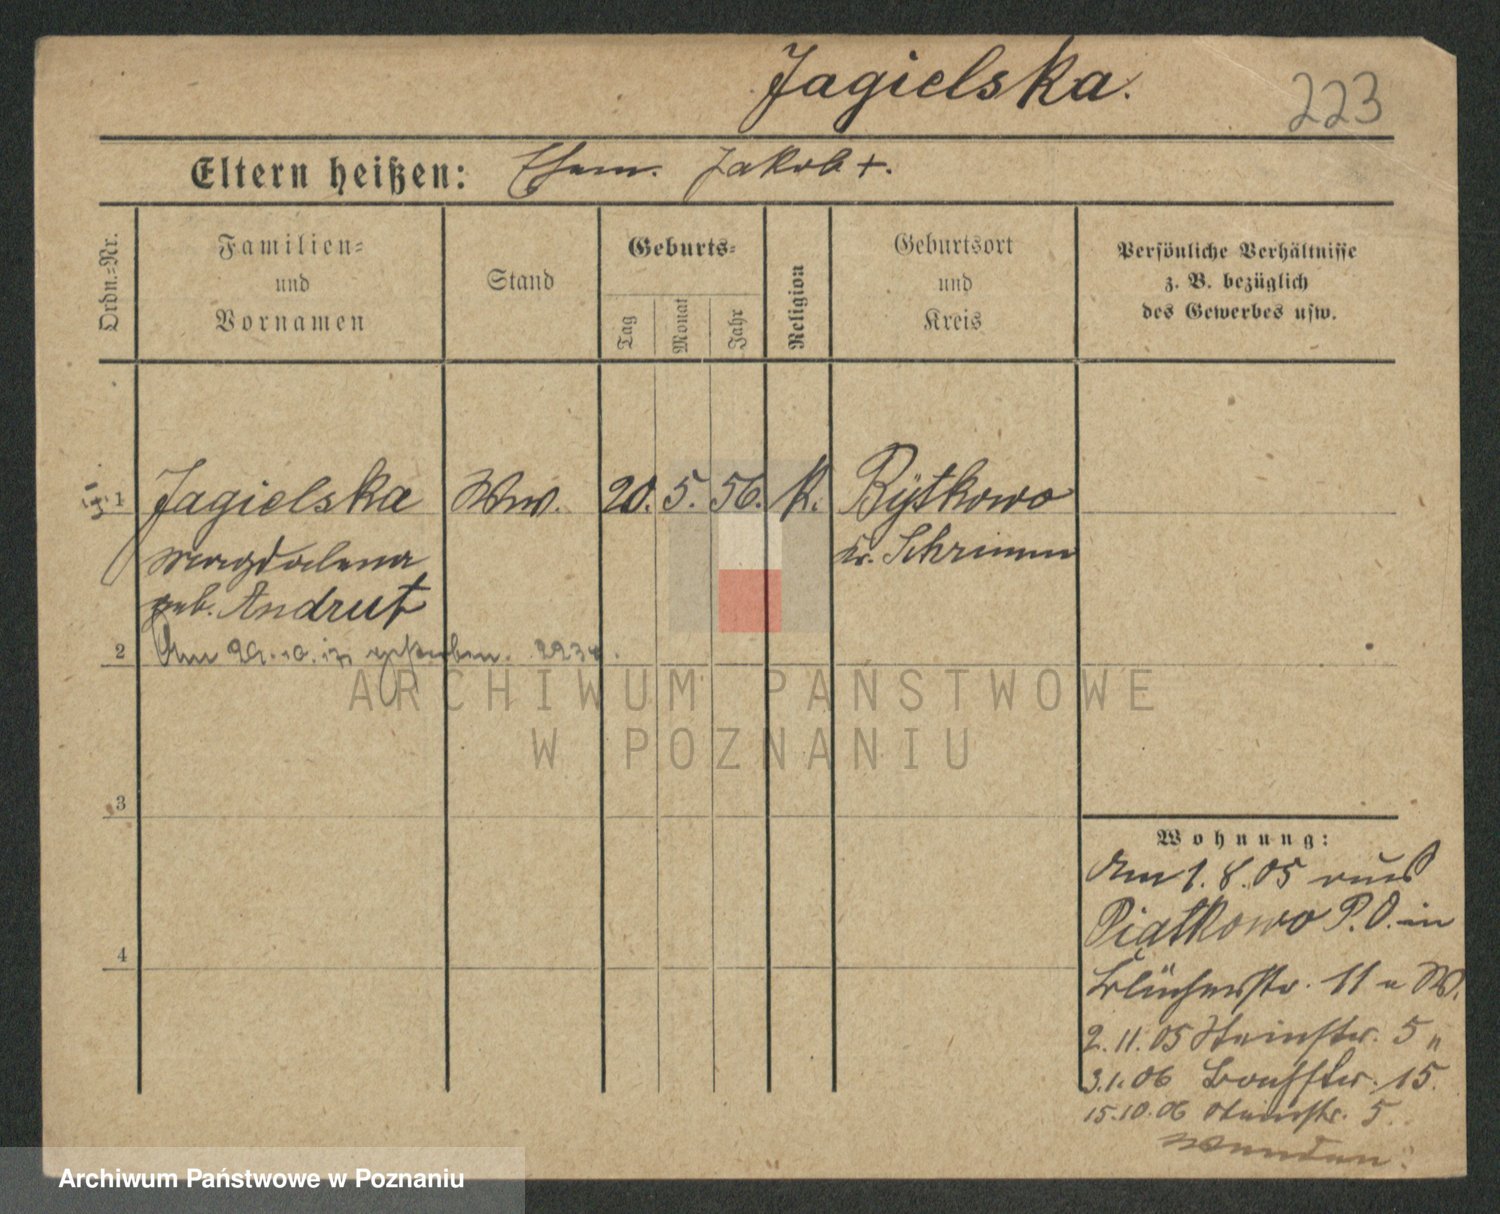 Jagielska.
223
Eltern heißen: Ehem. Jakob +.
Ordn.=Nr.
Familien=
und
Vornamen
Stand
Geburts=
Tag
Monat
Jahr
Religion
Geburtsort
und
Kreis
Persönliche Verhältnisse
z. B. bezüglich
des Gewerbes usw.
1 Jagielska Ww. 20. 5. 56. K. Rytkowo
Magdalena Kr. Schrimm
geb. Andrut
2 Am gestorben.
3
4
Wohnung:
Am 1. 8. 05 aus
Piatkowo P. O. in
Blücherstr. 11 a W.
2. 11. 05 Steinstr. 5 "
3. 1. 06 15.
15. 10. 06 Steinstr. 5.
Wenden.
ARCHIWUM PAŃSTWOWE
W POZNANIU
Archiwum Państwowe w Poznaniu